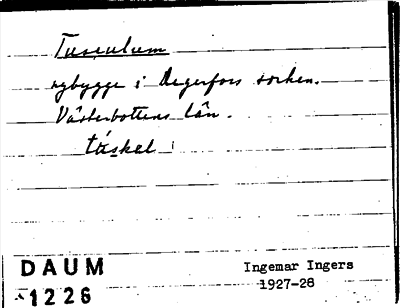 Tusculum
nybygge i Degerfors socken.
Västerbottens län.
túskel
DAUM
1226
Ingemar Ingers
1927-28